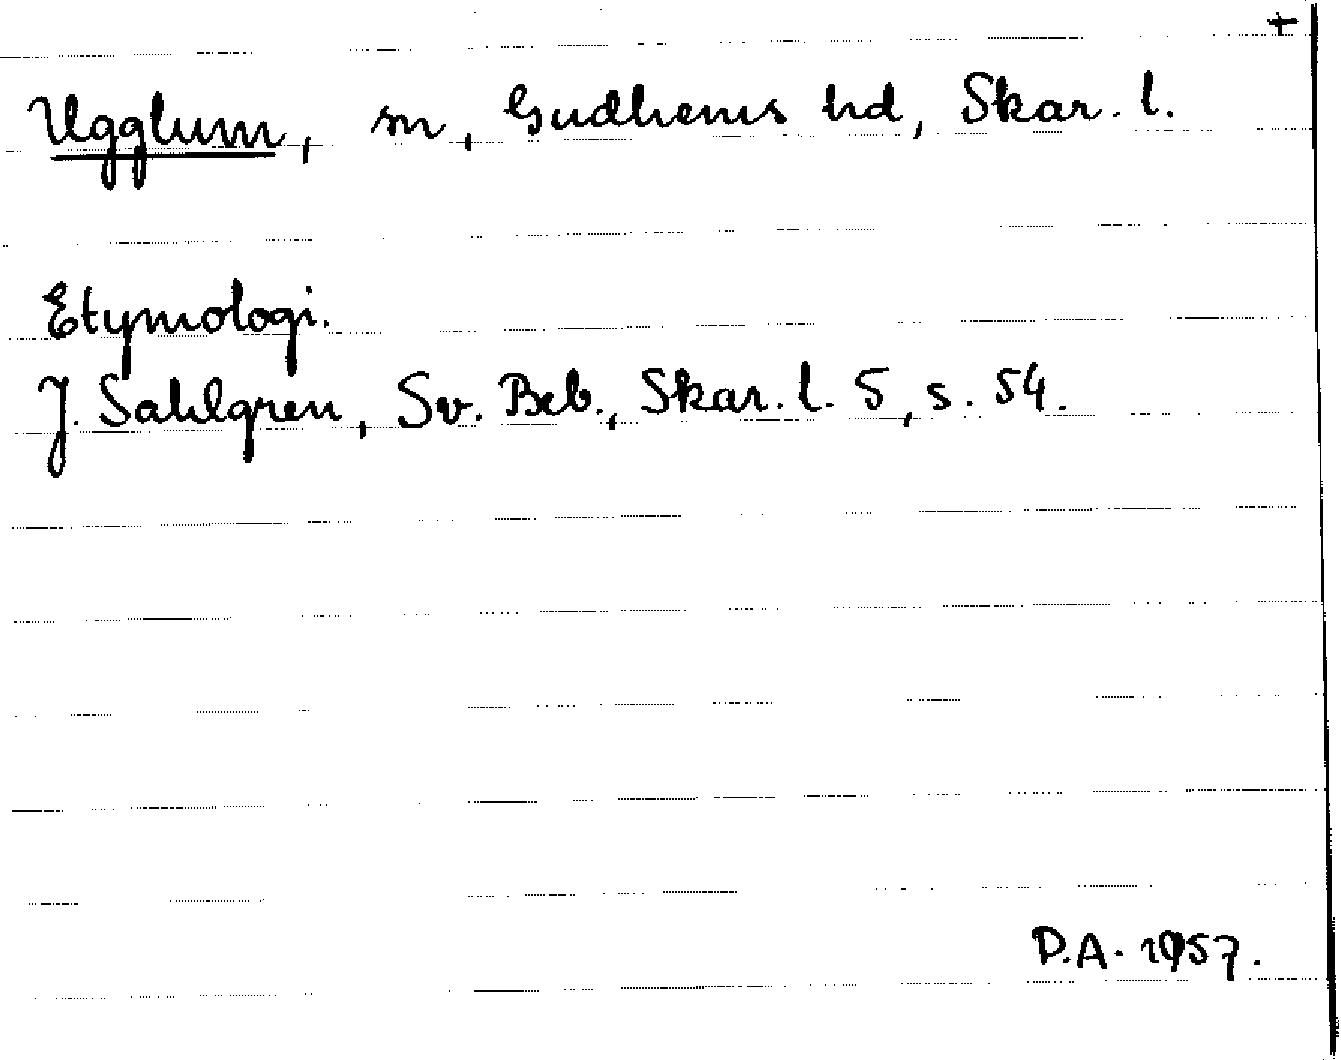 +
Ugglum, sn, Gudhems hd, Skar. l.
Etymologi.
J. Sahlgren, Sv. Beb., Skar. l. 5, s. 54.
D.A. 1957.